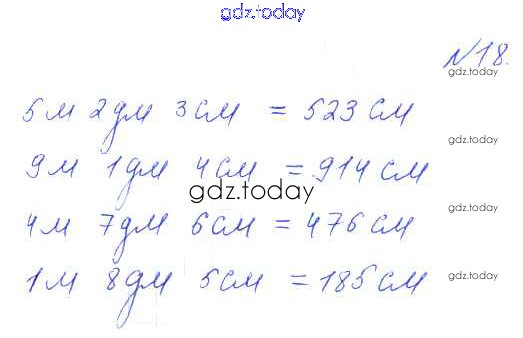 gdz.today
№18.
gdz.today
5м 2дм 3см = 523см
gdz.today
9м 1дм 4см = 914см
gdz.today
4м 7дм 6см = 476см
gdz.today
1м 8дм 5см = 185см
gdz.today